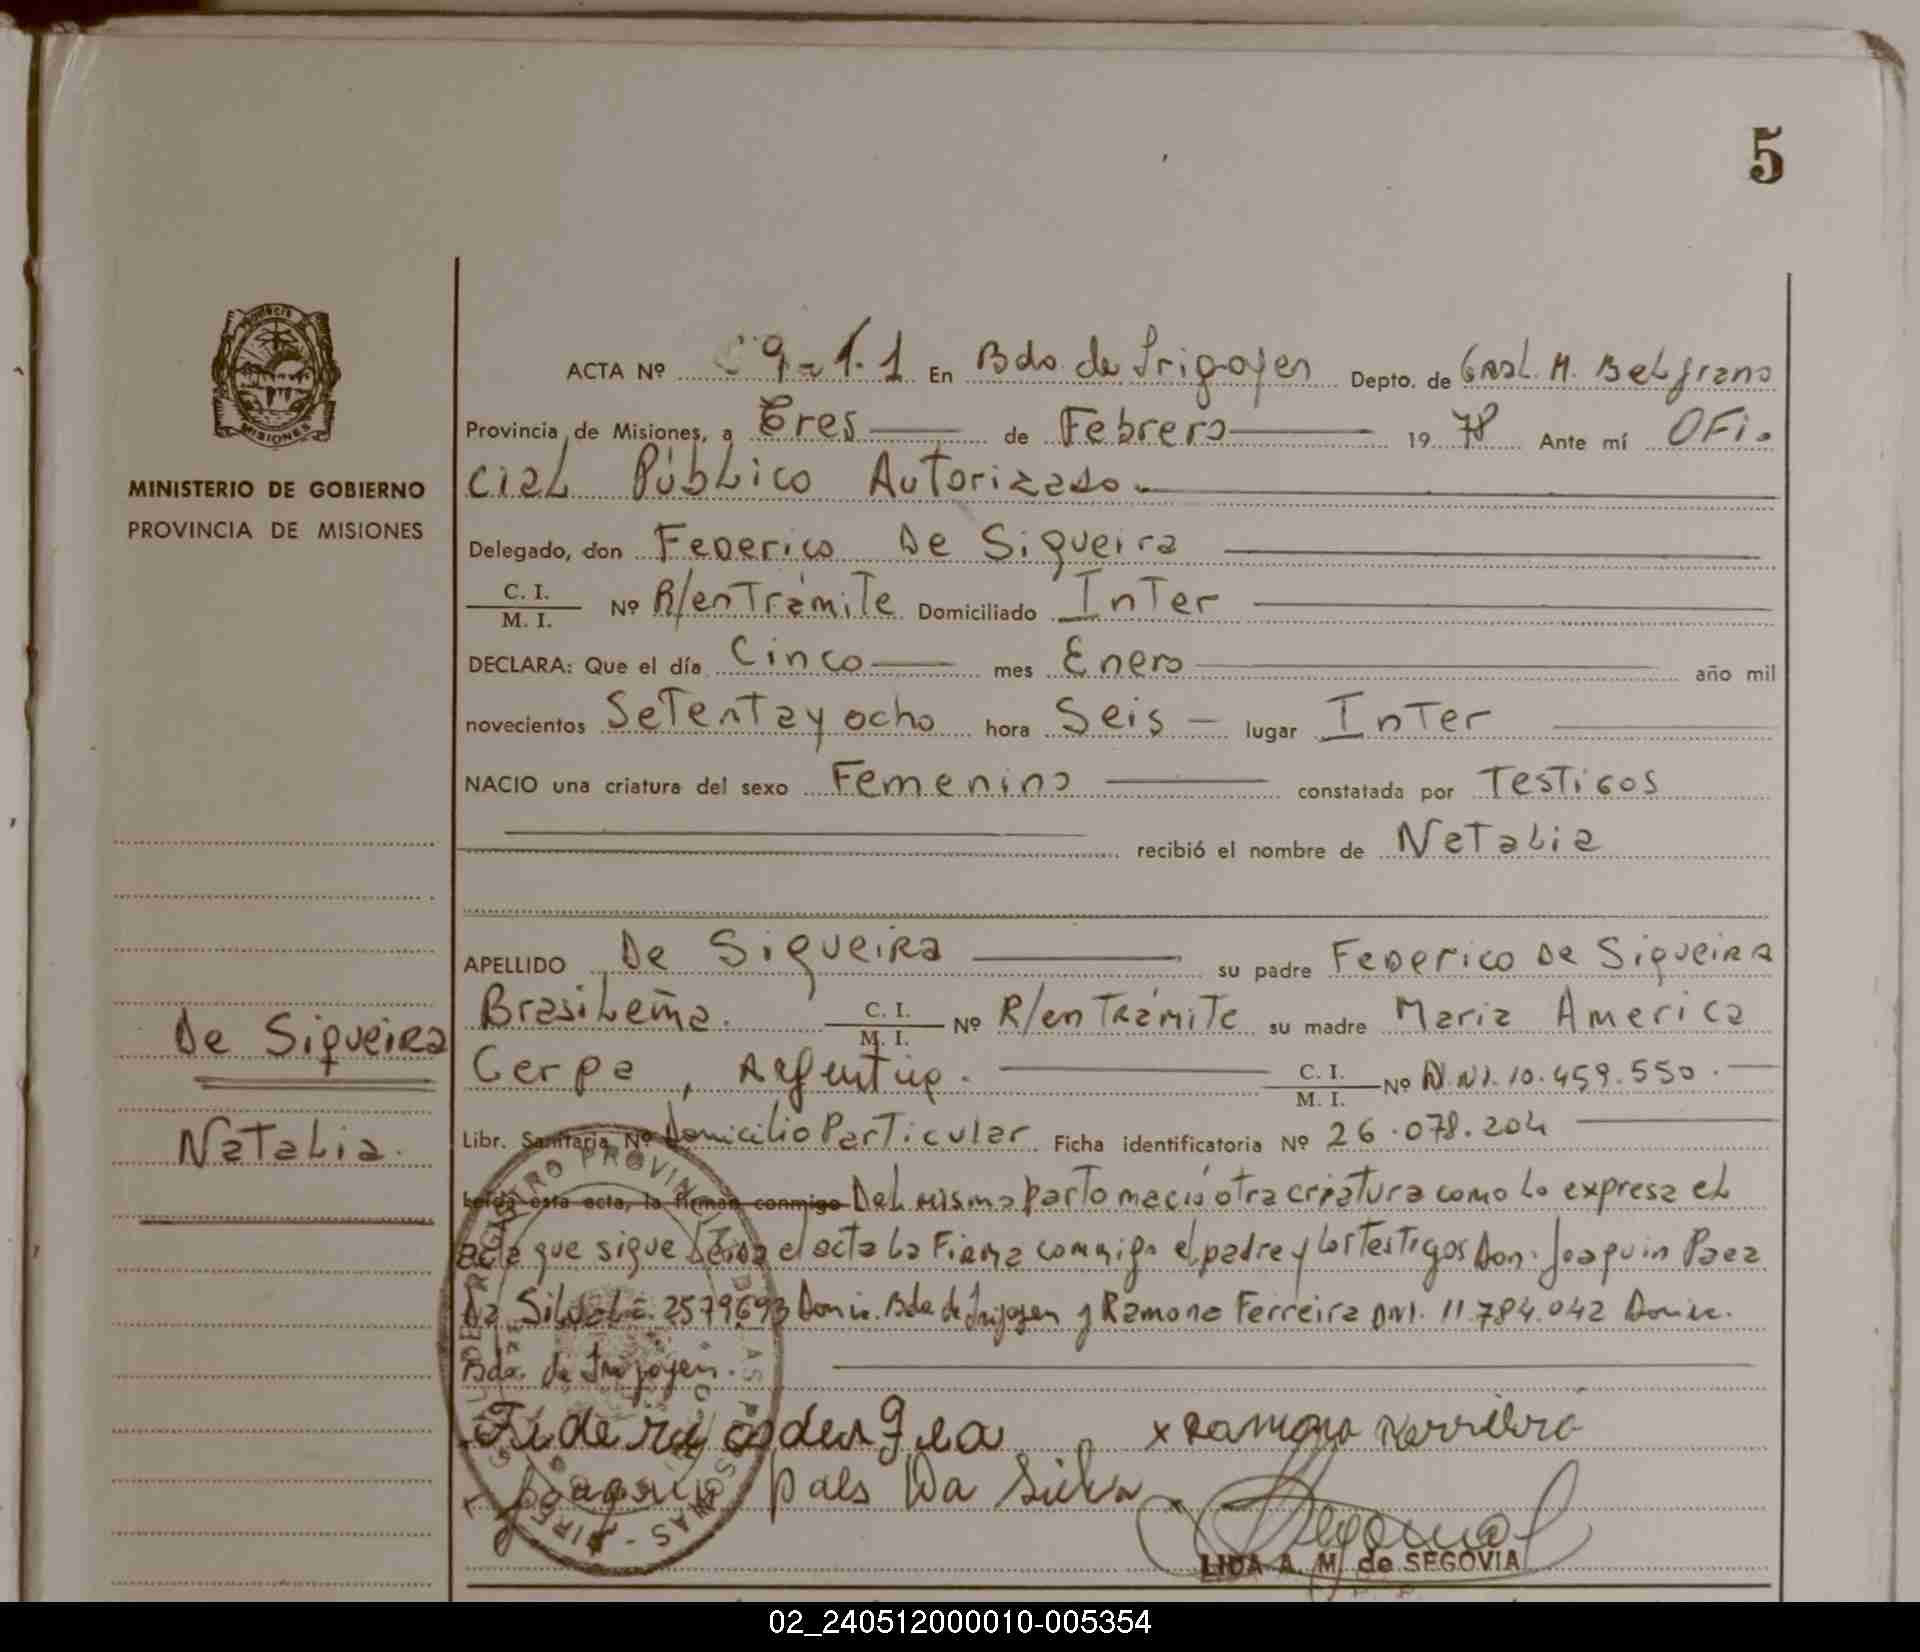 5
ACTA Nº 9-1.1 En Bdo de Irigoyen Depto. de Gral. M. Belgrano
Provincia de Misiones, a Tres de Febrero 1978 Ante mí OFi.
cial Público Autorizado.
MINISTERIO DE GOBIERNO
PROVINCIA DE MISIONES
Delegado, don Federico De Siqueira
C. I.
M. I.
Nº R/en Trámite Domiciliado Inter
DECLARA: Que el día Cinco mes Enero año mil
novecientos Setenta y ocho hora Seis lugar Inter
NACIO una criatura del sexo Femenino constatada por Testigos
recibió el nombre de Natalia
APELLIDO De Siqueira su padre Federico De Siqueira
Brasileña. C. I. M. I. Nº R/en Trámite su madre Maria America
De Siqueira
Cerpa, Argentina. C. I. M. I. Nº D.N.I. 10.459.550.
Natalia.
Libr. Sanitaria Nº Domicilio Particular Ficha identificatoria Nº 26.078.204
Leída esta acta, la firman conmigo Del mismo parto nació otra criatura como lo expresa el
acta que sigue Leida el acta La Firma conmigo el padre y los testigos Don: Joaquin Paez
Da Silva 2579693 Domic. Bdo de Irigoyen y Ramona Ferreira DNI. 11.784.042 Domic.
Bdo. de Irigoyen.
x Ramona
Da Silva
LIDA A. M. de SEGOVIA
02_240512000010-005354